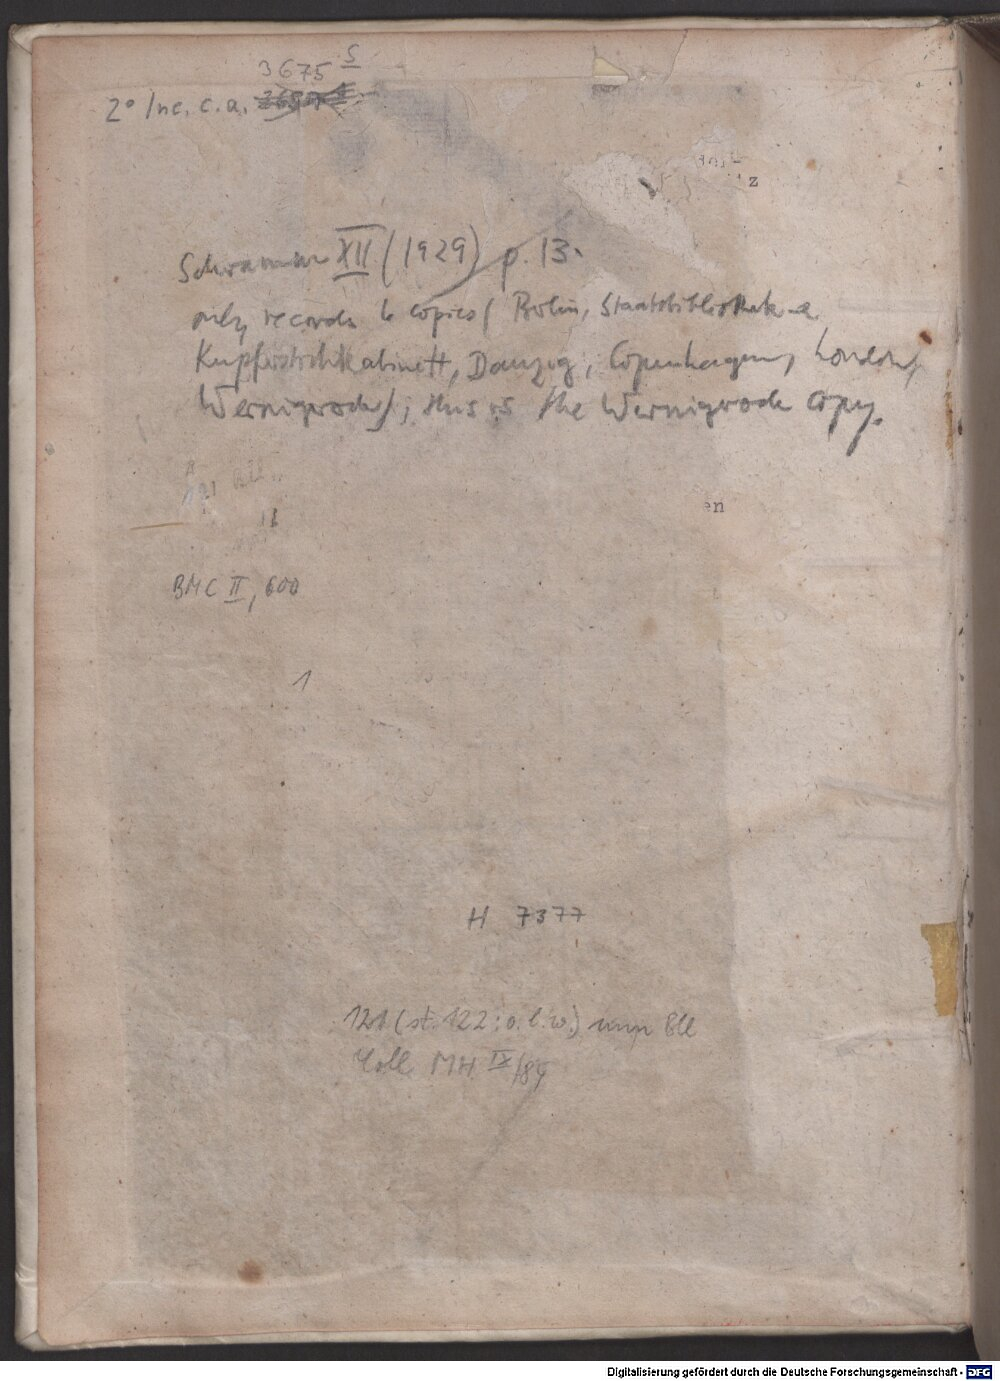 3675 s
2° Inc. c. a.
Schramm XII (1929) p. 13.
only records 6 copies (Berlin, Staatsbibliothek &
Kupferstichkabinett, Danzig, Copenhagen, London,
Wernigerode); this is the Wernigerode copy.
en
BMC II, 600
1
H 7377
121 (st. 122: o. l. w.) Bll
Coll. MH IX/84
Digitalisierung gefördert durch die Deutsche Forschungsgemeinschaft - DFG